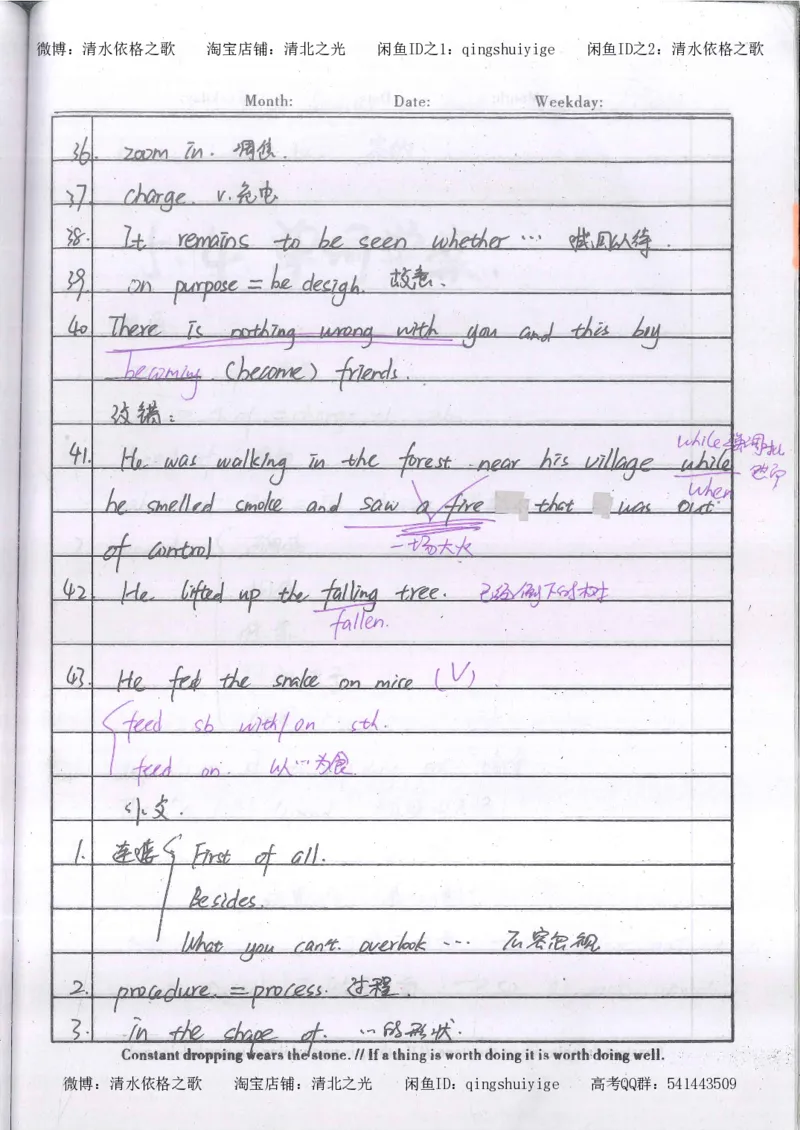 微博：清水依格之歌 淘宝店铺：清北之光 闲鱼ID之1：qingshuiyige 闲鱼ID之2：清水依格之歌
Month: Date: Weekday:
36. zoom in. 调焦.
37. charge. v. 充电
38. It remains to be seen whether … 拭目以待.
39. on purpose = be desigh. 故意.
40 There is nothing wrong with you and this boy
becoming (become) friends.
改错：
41. He was walking in the forest near his village while
while
when
he smelled smoke and saw a fire that was out
of control
一场大火
42. He lifted up the falling tree. 已经倒下的树
fallen.
43. He fed the snake on mice (√)
feed sb with/on sth.
feed on. 以…为食
小文.
1. 连接 First of all.
Besides.
What you can't. overlook … 不容忽视
2. procedure. = process. 过程.
3. in the shape of. …的形状.
Constant dropping wears the stone. // If a thing is worth doing it is worth doing well.
微博：清水依格之歌 淘宝店铺：清北之光 闲鱼ID：qingshuiyige 高考QQ群：541443509